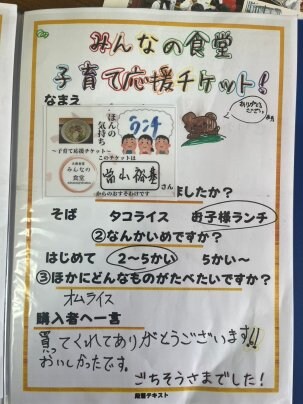 みんなの食堂
子育て応援チケット!
なまえ
ほんの気持ち
ランチ
～子育て応援チケット～
このチケットは
みんなの
食堂
さん
からのおすそわけです
ましたか?
そば タコライス お子様ランチ
②なんかいめですか?
はじめて 2～5かい 5かい～
③ほかにどんなものがたべたいですか?
オムライス
購入者へ一言
買ってくれてありがとうございます!!
おいしかったです。
ごちそうさまでした!